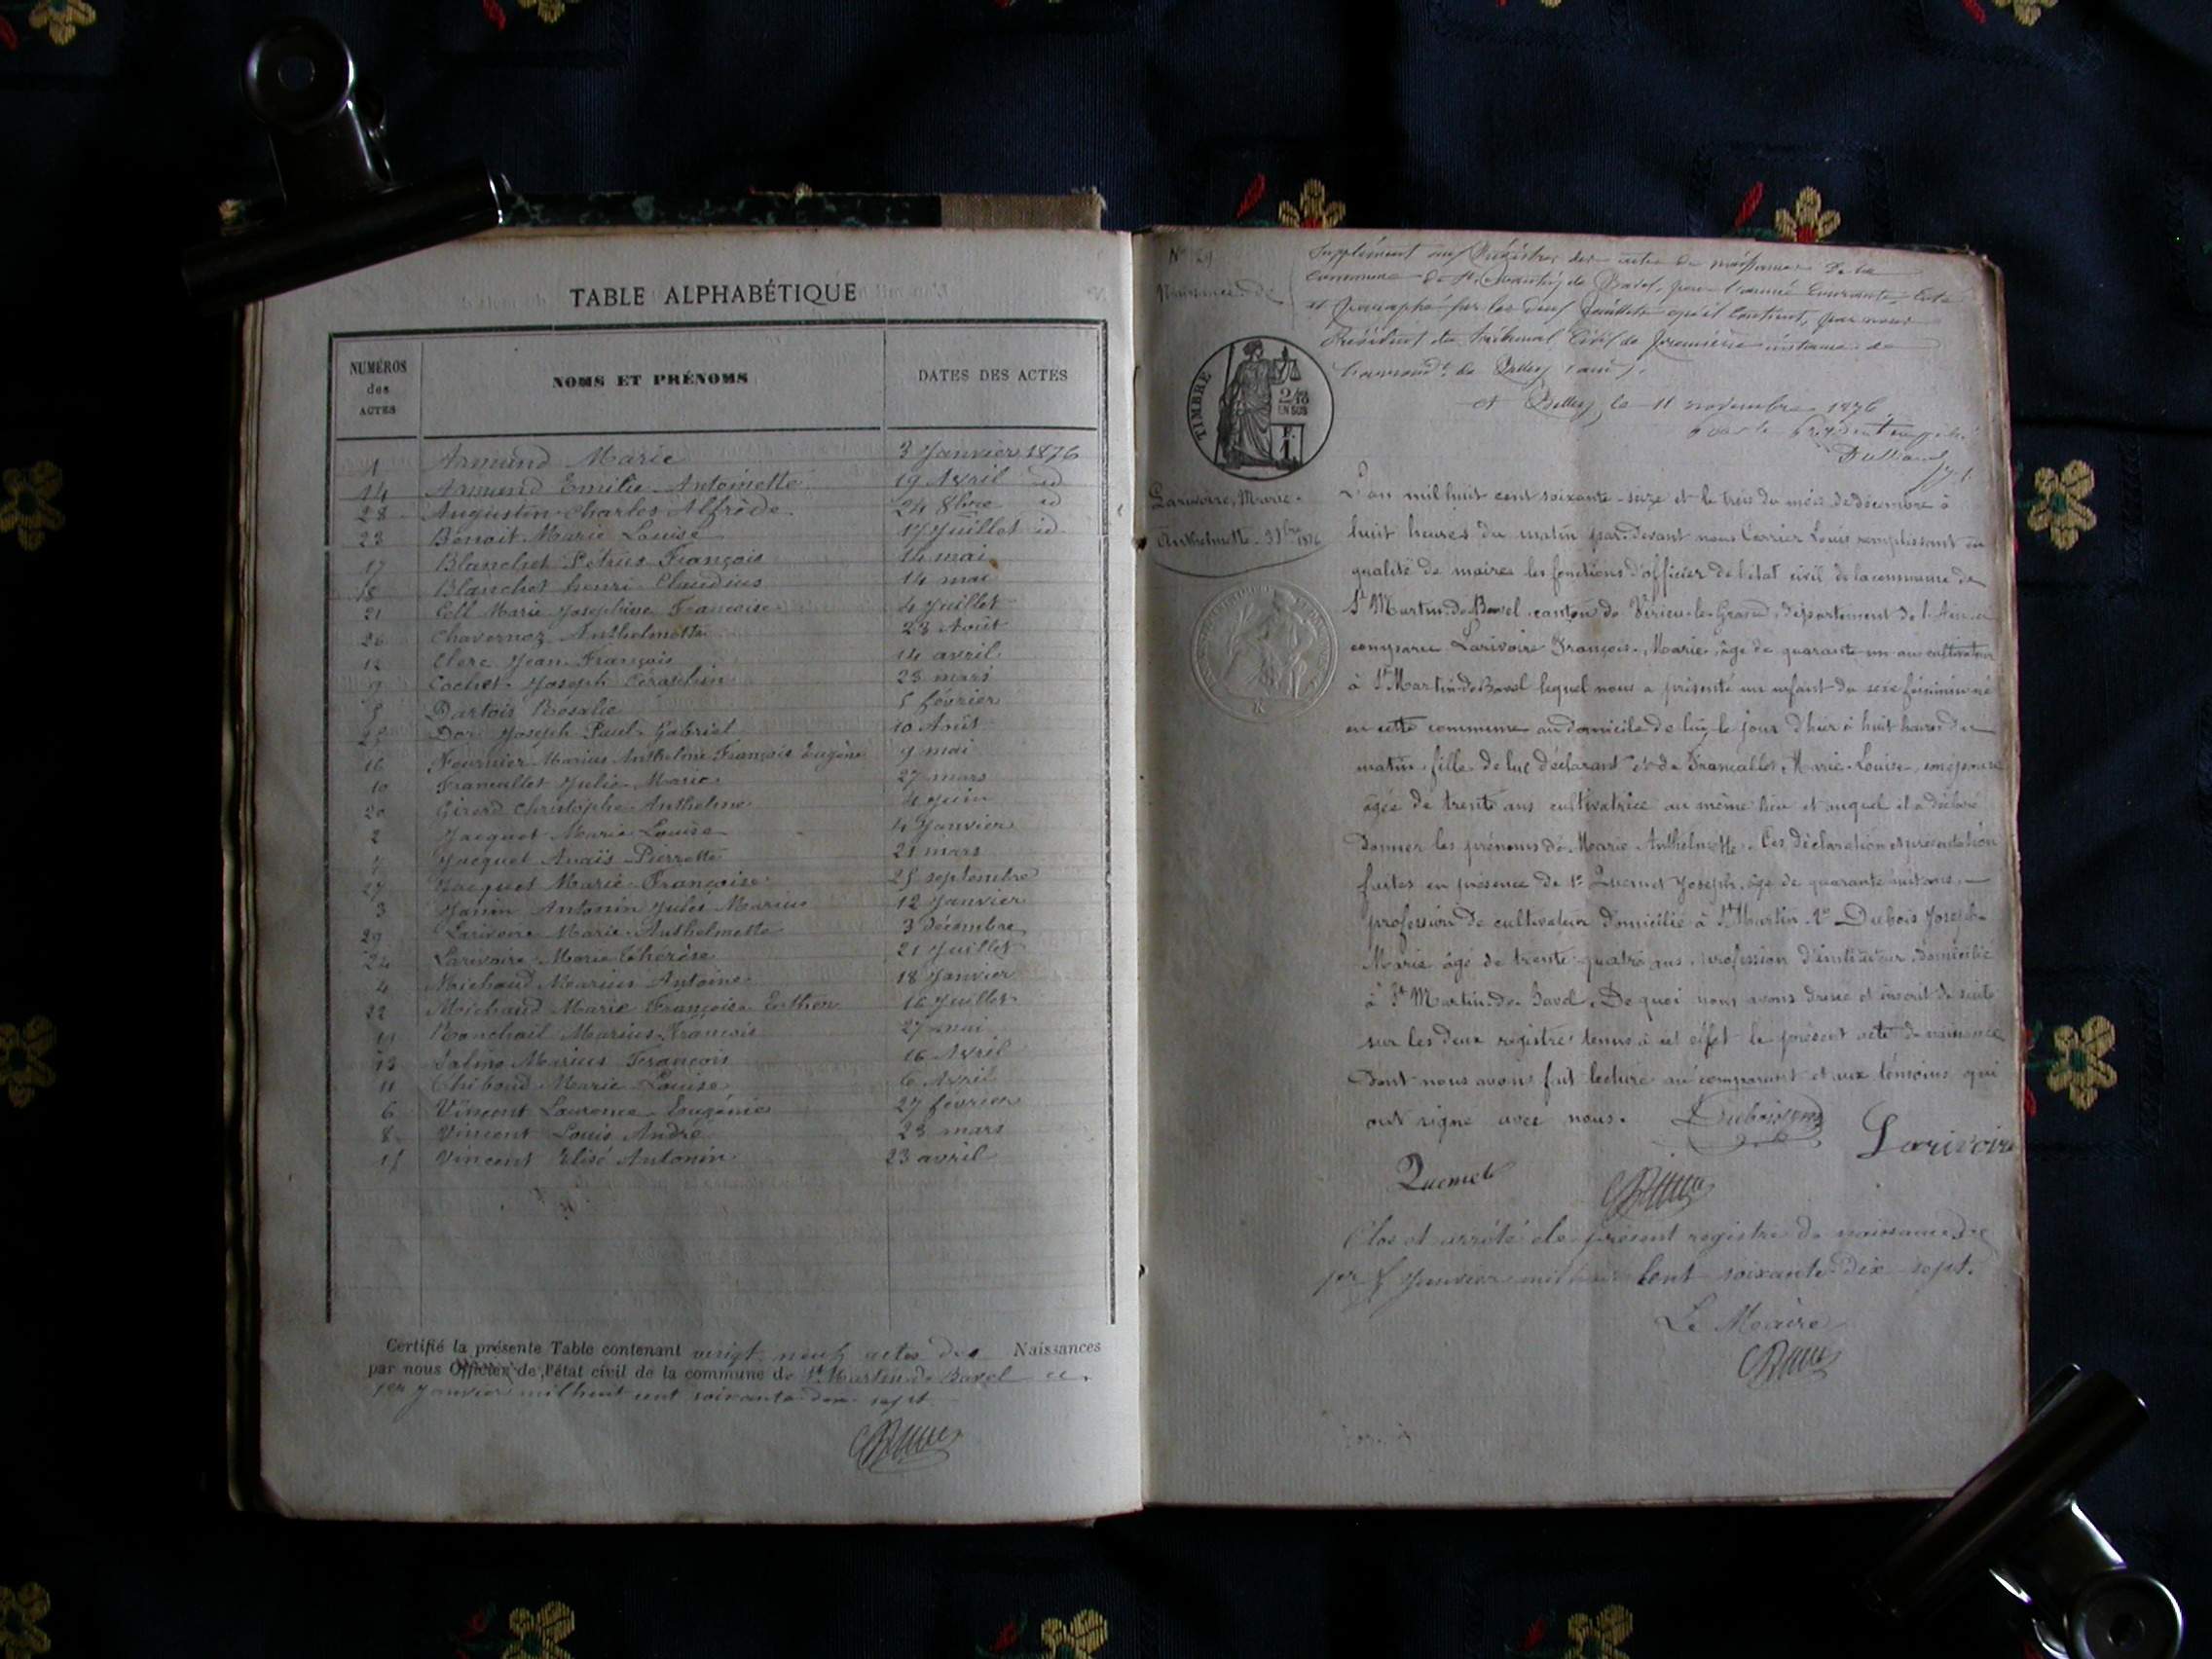 TABLE ALPHABÉTIQUE
NUMÉROS des ACTES
NOMS ET PRÉNOMS
DATES DES ACTES
1 Armand Marie 3 Janvier 1876
14 Armand Emilie Antoinette 19 Avril id
28 Augustin Charles Alfrède 24 8bre id
23 Benoit Marie Louise 17 Juillet id
17 Blanchet Pétrus François 14 mai
18 Blanchet henri Claudius 14 mai
21 Coll Marie Josephine Françoise 4 Juillet
26 Chavernoz Anthelmette 23 Août
12 Clerc Jean François 14 avril
9 Cochet Joseph 23 mars
5 Dartois Rosalie 5 février
25 Doi Joseph Paul Gabriel 10 Août
16 Fournier Marius Anthelme François Eugène 9 mai
10 Francallet Julie Marie 27 mars
20 Girerd Christophe Anthelme 4 Juin
2 Jacquet Marie Louise 4 Janvier
7 Jacquet Anaïs Pierrette 21 mars
27 Jacquet Marie Françoise 25 septembre
3 Janin Antonin Jules Marius 12 Janvier
29 Larivoire Marie Anthelmette 3 décembre
24 Larivoire Marie Thérèse 21 Juillet
4 Michaud Marius Antoine 18 Janvier
22 Michaud Marie Françoise Esther 16 Juillet
19 Marius François 27 mai
13 Marius François 16 Avril
11 Thiboud Marie Louise 6 Avril
6 Vincent Laurence Eugénie 27 février
8 Vincent Louis André 23 mars
15 Vincent Elisé Antonin 23 avril
Certifié la présente Table contenant vingt neuf actes des Naissances
par nous Officier de l'état civil de la commune de St Martin de Bavel ce
1er Janvier mil huit cent soixante dix sept
No 29
Naissance de
Supplément aux Régistres des actes de naissances de la
commune de St Martin de Bavel, pour l'année courante, coté
et paraphé sur les deux feuillets qu'il contient, par nous
Président du tribunal Civil de première instance de
l'arrondt de Belley (ain).
A Belley, le 11 novembre 1876
TIMBRE
2/10
EN SUS
F. 1
Larivoire, Marie-
Anthelmette 3 Xbre 1876
L'an mil huit cent soixante-seize et le trois du mois de décembre à
huit heures du matin par-devant nous Louis remplissant en
qualité de maire les fonctions d'officier de l'état civil de la commune de
St Martin-de-Bavel canton de Virieu-le-Grand, département de l'Ain a
comparu Larivoire François-Marie, âgé de quarante-un ans cultivateur
à St Martin-de-Bavel lequel nous a présenté un enfant du sexe féminin né
en cette commune au domicile de lui, le jour d'hier à huit heures du
matin, fille de lui déclarant et de Francallet, Marie-Louise, son épouse
âgée de trente ans cultivatrice au même lieu et auquel il a déclaré
donner les prénoms de Marie Anthelmette. Ces déclaration et présentation
faites en présence de 1° Quemet Joseph, âgé de quarante huit ans
profession de cultivateur domicilié à St Martin 2° Dubois Joseph-
Marie âgé de trente quatre ans, profession d'instituteur, domicilié
à St Martin-de-Bavel. De quoi nous avons dressé et inscrit de suite
sur les deux registres tenus à cet effet le présent acte de naissance
dont nous avons fait lecture au comparant et aux témoins qui
ont signé avec nous. Dubois Larivoire
Quemet
Clos et arrêté le présent registre de naissances le
1er Janvier mil huit cent soixante-dix sept.
Le Maire